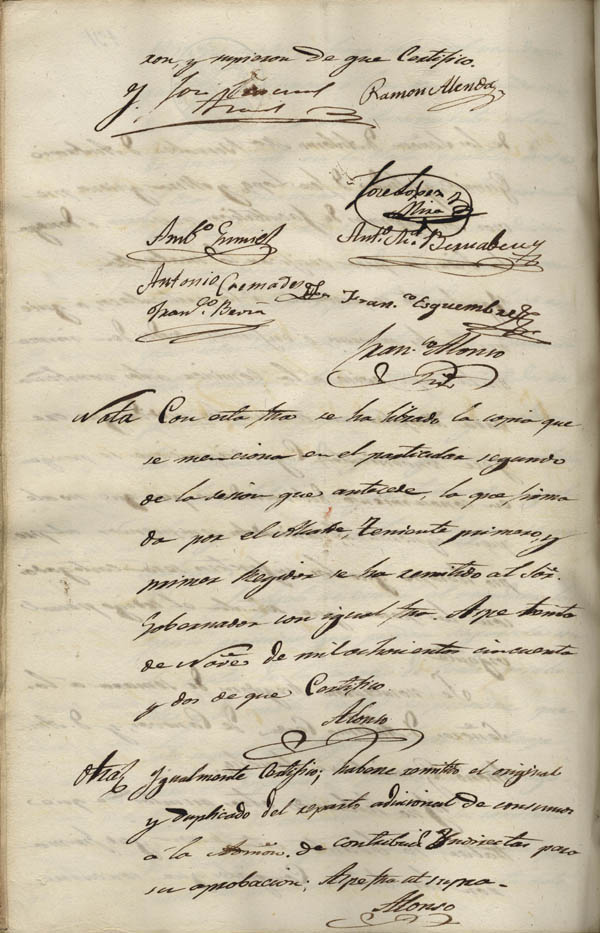 ron, y supieron de que Certifico.
Ramon Alenda
Jose Lopez
Mira
Amb.º
Ant.º M.ª Bernabeu y
Antonio Cremades
Fran.co Esquembre
Fran.co Beviá
Fran.co Alonso
Nota Con esta fha se ha librado la copia que
se menciona en el particular segundo
de la sesion que antecede, la que firma
da por el Alcalde, Teniente primero, y
primer Regidor se ha remitido al Sõr.
Gobernador con igual fha. Aspe treinta
de Noṽe de mil ochocientos cincuenta
y dos de que Certifico
Alonso
Otra Ygualmente Certifico; haberse remitido el original
y duplicado del reparto adicional de consumos
á la Admõn. de contribuc.s Yndirectas para
su aprobacion; Aspe fha ut supra.
Alonso